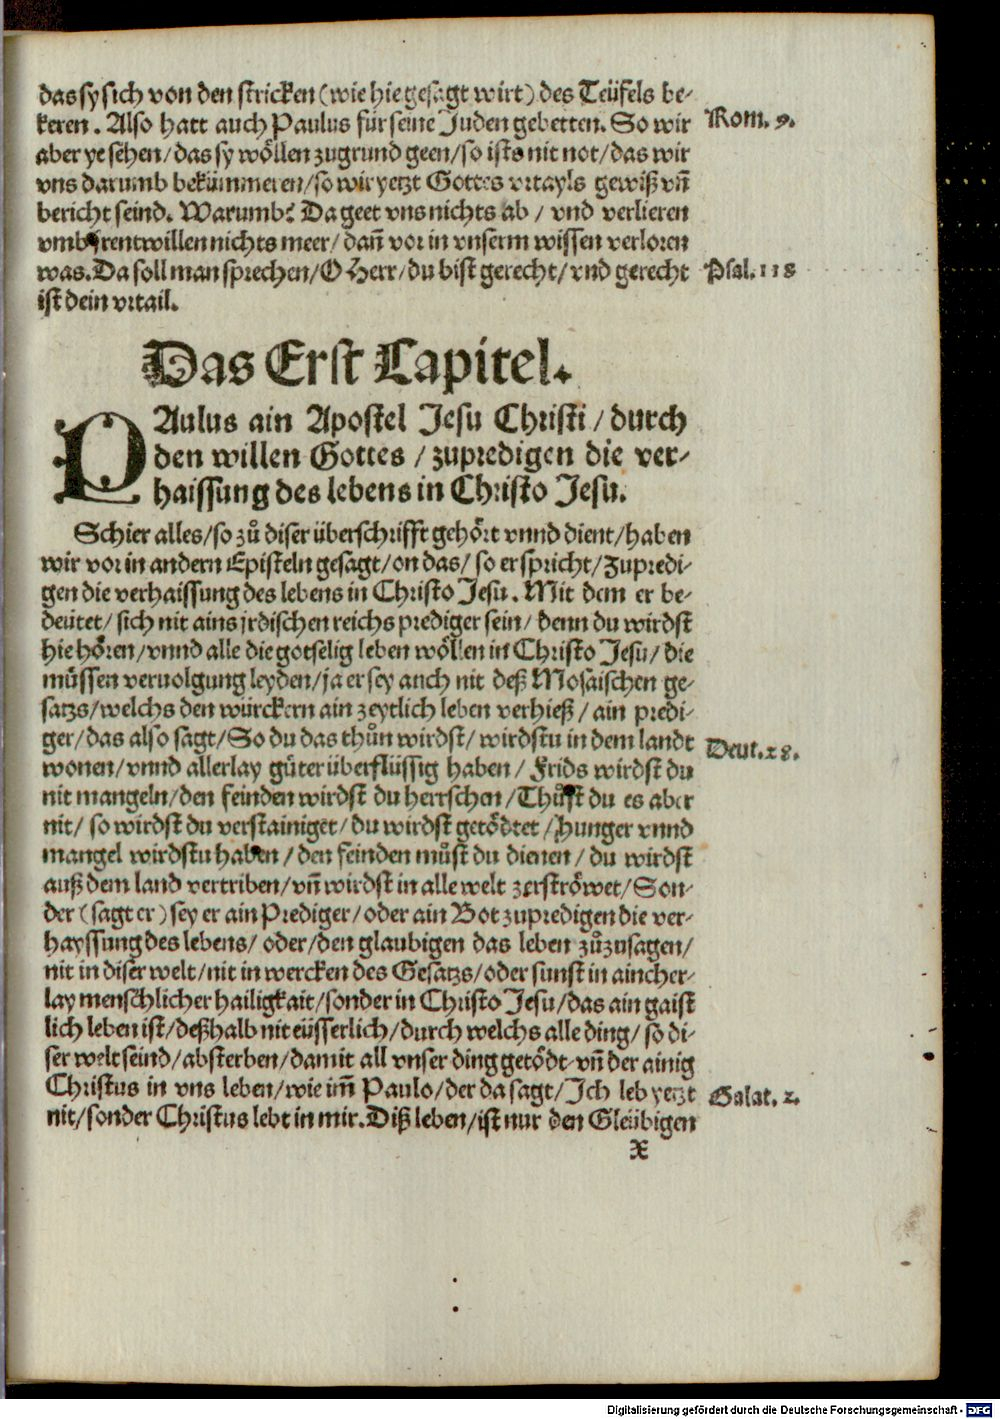 das sy sich von den stricken (wie hie gesagt wirt) des Teüfels be-
keren. Also hatt auch Paulus für seine Juden gebetten. So wir
Rom. 9.
aber ye sehen/das sy wöllen zugrund geen/so ists nit not/das wir
vns darumb bekümmeren/so wir yetzt Gottes vrtayls gewiß vñ
bericht seind. Warumb? Da geet vns nichts ab/ vnd verlieren
vmb jrentwillen nichts meer/dañ vor in vnserm wissen verloren
was. Da soll man sprechen/O Herr/du bist gerecht/vnd gerecht
Psal. 118
ist dein vrtail.
Das Erst Capitel.
PAulus ain Apostel Jesu Christi/durch
den willen Gottes/zupredigen die ver-
haissung des lebens in Christo Jesu.
Schier alles/so zů diser überschrifft gehört vnnd dient/haben
wir vor in andern Episteln gesagt/on das/so er spricht/Zupredi-
gen die verhaissung des lebens in Christo Jesu. Mit dem er be-
deütet/sich nit ains jrdischen reichs prediger sein/denn du wirdst
hie hören/vnnd alle die gotselig leben wöllen in Christo Jesu/die
müssen veruolgung leyden/ja er sey auch nit deß Mosaischen ge-
satzs/welchs den würckern ain zeytlich leben verhieß/ain predi-
ger/das also sagt/So du das thůn wirdst/wirdstu in dem landt
Deut. 28.
wonen/vnnd allerlay güter überflüssig haben/Frids wirdst du
nit mangeln/den feinden wirdst du herrschen/Thůst du es aber
nit/so wirdst du verstainiget/du wirdst getödtet/Hunger vnnd
mangel wirdstu haben/den feinden můst du dienen/du wirdst
auß dem land vertriben/vñ wirdst in alle welt zerströwet/Son-
der (sagt er) sey er ain Prediger/oder ain Bot zupredigen die ver-
hayssung des lebens/oder/den glaubigen das leben zůzusagen/
nit in diser welt/nit in wercken des Gesatzs/oder sunst in aincher-
lay menschlicher hailigkait/sonder in Christo Jesu/das ain gaist
lich leben ist/deßhalb nit eüsserlich/durch welchs alle ding/so di-
ser welt seind/absterben/damit all vnser ding getödt vñ der ainig
Christus in vns leben/wie im̃ Paulo/der da sagt/Ich leb yetzt
Galat. 2.
nit/sonder Christus lebt in mir. Diß leben/ist nur den Gleübigen
X
Digitalisierung gefördert durch die Deutsche Forschungsgemeinschaft - DFG